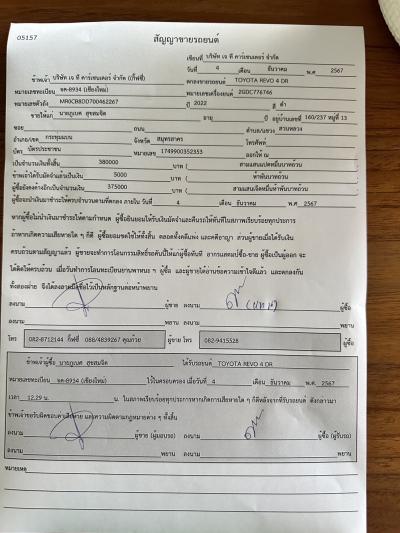 05157
สัญญาขายรถยนต์
เขียนที่ บริษัท เจ ที คาร์เซนเตอร์ จำกัด
วันที่ 4 เดือน ธันวาคม พ.ศ 2567
ข้าพเจ้า บริษัท เจ ที คาร์เซนเตอร์ จำกัด (กิ๊ฟซี่) ตกลงขายรถยนต์ TOYOTA REVO 4 DR
หมายเลขทะเบียน ขค-8934 (เชียงใหม่) หมายเลขเครื่องยนต์ 2GDC776746
หมายเลขตัวถัง MR0CB8DD700462267 ปี 2022 สี ดำ
ขายให้แก่ นายภูเบศ สุขสมจิต อายุ ปี อยู่บ้านเลขที่ 160/237 หมู่ที่ 13
ซอย ถนน ตำบล/แขวง สวนหลวง
อำเภอ/เขต กระทุ่มแบน จังหวัด สมุทรสาคร โทรศัพท์
บัตร บัตรประชาชน หมายเลข 1749900352353 ออกให้ ณ
เป็นจำนวนเงินทั้งสิ้น 380000 บาท ( สามแสนแปดหมื่นบาทถ้วน
ข้าพเจ้าได้รับมัดจำและเป็นเงิน 5000 บาท ( ห้าพันบาทถ้วน
ผู้ซื้อยังคงค้างอีกเป็นจำนวนเงิน 375000 บาท ( สามแสนเจ็ดหมื่นห้าพันบาทถ้วน
ผู้ซื้อจะนำเงินมาชำระให้ครบจำนวนตามที่ตกลง ภายใน วันที่ 4 เดือน ธันวาคม พ.ศ 2567
หากผู้ซื้อไม่นำเงินมาชำระให้ตามกำหนด ผู้ซื้อยินยอมให้ริบเงินมัดจำและคืนรถให้ทันทีในสภาพเรียบร้อยทุกประการ
ถ้าหากเกิดความเสียหายใด ๆ ก็ดี ผู้ซื้อยอมชดใช้ให้ทั้งสิ้น ตลอดทั้งคดีแพ่ง และคดีอาญา ส่วนผู้ขายเมื่อได้รับเงิน
ครบถ้วนตามสัญญาแล้ว ผู้ขายจะทำการโอนกรรมสิทธิ์รถคันนี้ให้แก่ผู้ซื้อทันที อากรแสตมป์ซื้อ-ขาย ผู้ซื้อเป็นผู้ออก จะ
ได้คิดให้ครบถ้วน เมื่อวันทำการโอนทะเบียนยานพาหนะ ฯ ผู้ซื้อ และผู้ขายได้อ่านข้อความเข้าใจดีแล้ว และตกลงกัน
ทั้งสองฝ่าย จึงได้ลงลายมือชื่อไว้เป็นหลักฐานต่อหน้าพยาน
ลงนาม ผู้ขาย ลงนาม ผู้ซื้อ
ลงนาม พยาน ลงนาม พยาน
โทร 082-8712144 กิ๊ฟซี่ 088/4839267 คุณก้วย ผู้ขาย โทร 082-9415528 ผู้ซื้อ
ข้าพเจ้าผู้ซื้อ นายภูเบศ สุขสมจิต ได้รับรถยนต์ TOYOTA REVO 4 DR
หมายเลขทะเบียน ขค-8934 (เชียงใหม่) ไว้ในครอบครอง เมื่อวันที่ 4 เดือน ธันวาคม พ.ศ. 2567
เวลา 12.29 น. น. ในสภาพเรียบร้อยทุกประการหากเกิดการเสียหายใด ๆ ก็ดีหลังจากที่รับรถยนต์ ดังกล่าวมา
ข้าพเจ้าขอรับผิดชอบค่าเสียหาย และความผิดตามกฎหมายต่าง ๆ ทั้งสิ้น
ลงนาม ผู้ขาย (ผู้มอบรถ) ลงนาม ผู้ซื้อ (ผู้รับรถ)
ลงนาม พยาน ลงนาม พยาน
หมายเหตุ